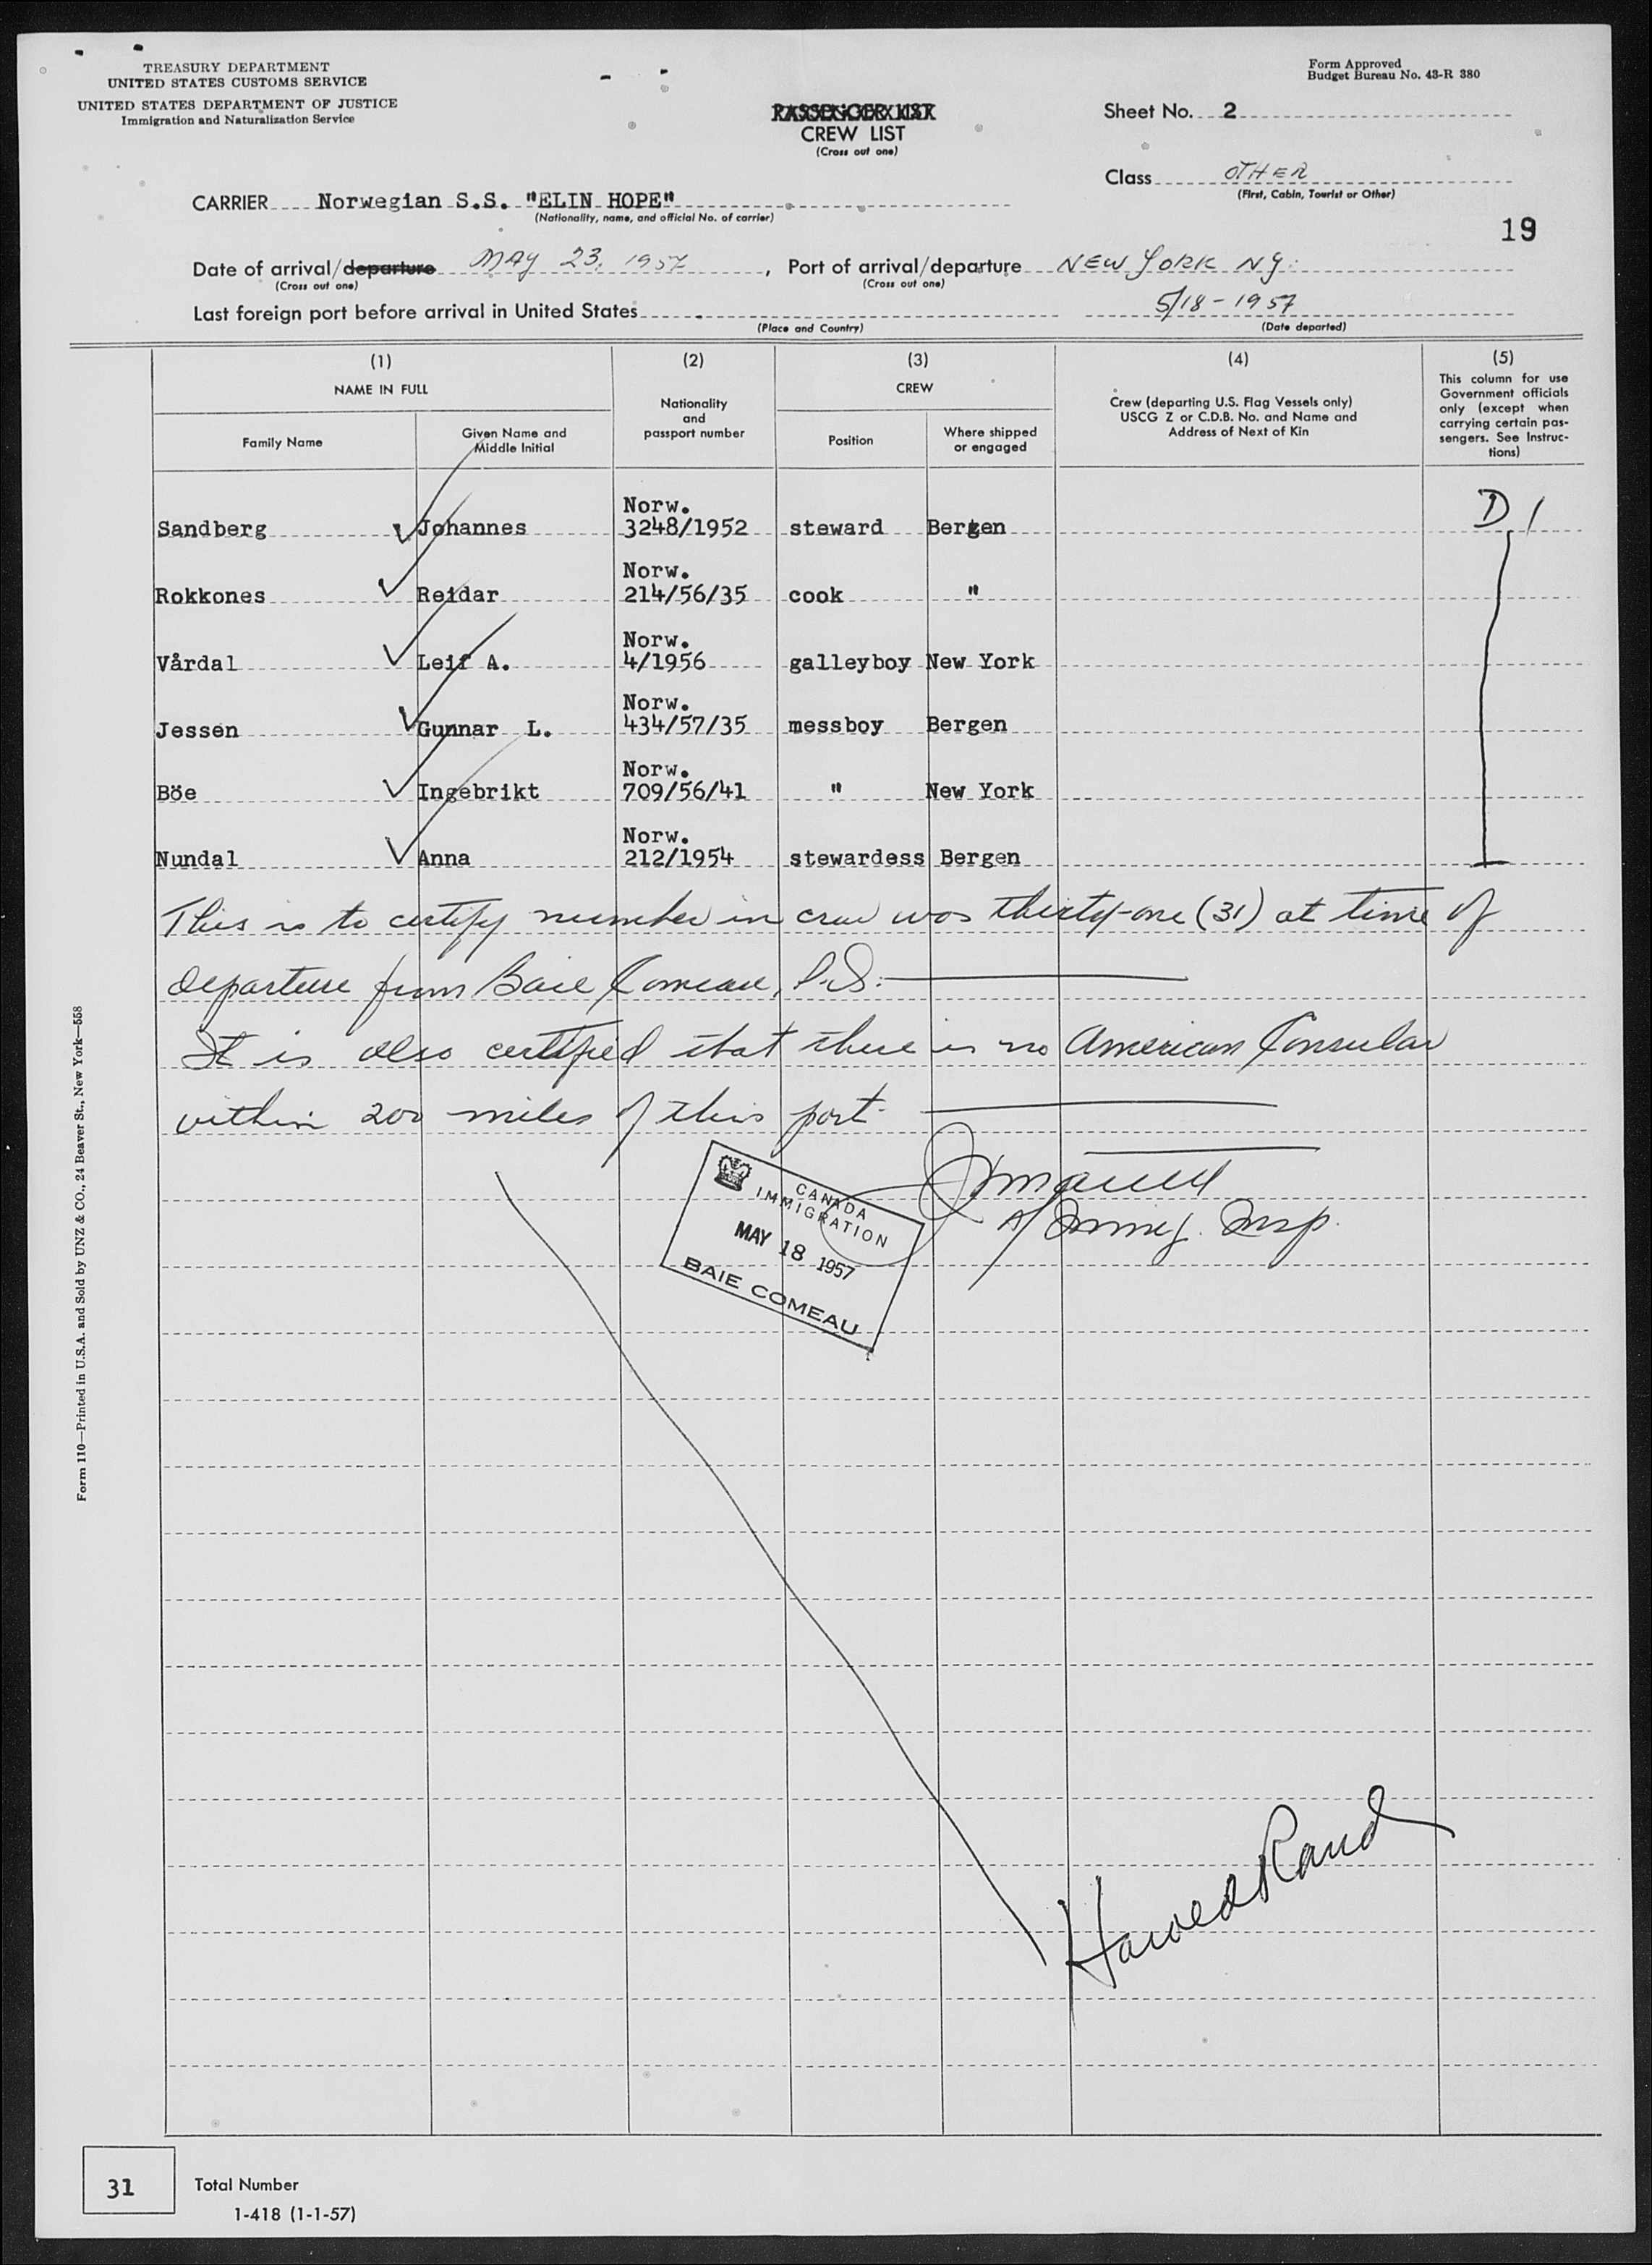 TREASURY DEPARTMENT
UNITED STATES CUSTOMS SERVICE
UNITED STATES DEPARTMENT OF JUSTICE
Immigration and Naturalization Service
Form Approved
Budget Bureau No. 43-R 380
PASSENGER LIST
CREW LIST
(Cross out one)
Sheet No. 2
Class OTHER
(First, Cabin, Tourist or Other)
CARRIER Norwegian S.S. "ELIN HOPE"
(Nationality, name, and official No. of carrier)
19
Date of arrival/departure MAY 23, 1957, Port of arrival/departure NEW YORK NY.
(Cross out one) (Cross out one)
Last foreign port before arrival in United States 5/18-1957
(Place and Country) (Date departed)
(1) (2) (3) (4) (5)
NAME IN FULL
Family Name
Given Name and
Middle Initial
Nationality
and
passport number
CREW
Position
Where shipped
or engaged
Crew (departing U.S. Flag Vessels only)
USCG Z or C.D.B. No. and Name and
Address of Next of Kin
This column for use
Government officials
only (except when
carrying certain pas-
sengers. See Instruc-
tions)
Norw.
Sandberg Johannes 3248/1952 steward Bergen D 1
Norw.
Rokkones Reidar 214/56/35 cook "
Norw.
Vårdal Leif A. 4/1956 galleyboy New York
Norw.
Jessen Gunnar L. 434/57/35 messboy Bergen
Norw.
Böe Ingebrikt 709/56/41 " New York
Norw.
Nundal Anna 212/1954 stewardess Bergen
This is to certify number in crew was thirty-one (31) at time of
departure from Baie Comeau, P.Q.
It is also certified that there is no American Consular
within 200 miles of this port.
Immig. Insp.
CANADA
IMMIGRATION
MAY 18 1957
BAIE COMEAU
Harold Rand
Form 110—Printed in U.S.A. and Sold by UNZ & CO., 24 Beaver St., New York—558
31 Total Number
1-418 (1-1-57)